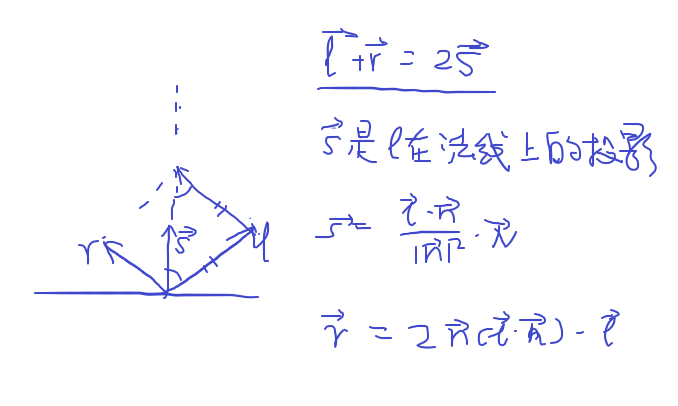 l⃗ + r⃗ = 2s⃗
s⃗是l在法线上的投影
s⃗ = (l⃗·n⃗)/|n⃗|² · n⃗
r⃗ = 2n⃗(l⃗·n⃗) - l⃗
r
s⃗
l